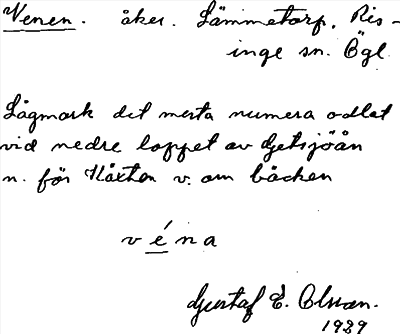 Venen. åker. Lämmetorp, Ris-
inge sn. Ögl
Lågmark det mesta numera odlat
vid nedre loppet av Getsjöån
n. för Håxten v. om bäcken
véna
Gustaf E. Olsson.
1929